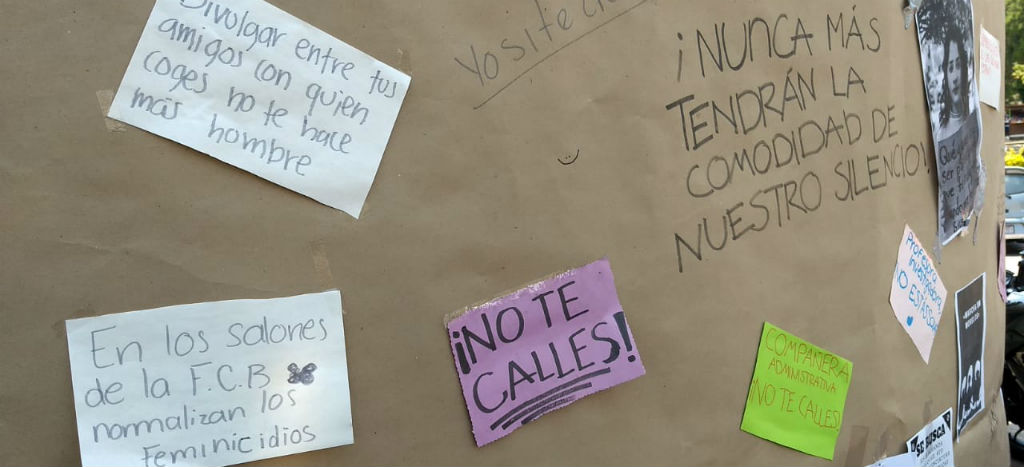 Divulgar entre tus
amigos con quien
coges no te hace
más hombre
Yo si te
¡NUNCA MÁS
TENDRÁN LA
COMODIDAD DE
NUESTRO SILENCIO!
En los salones
de la F.C.B
normalizan los
Feminicidios
¡NO TE
CALLES!
COMPAÑERA
ADMINISTRATIVA
¡NO TE CALLES!
Profesora
investigadora
NO ESTÁS SOLA
SE BUSCA